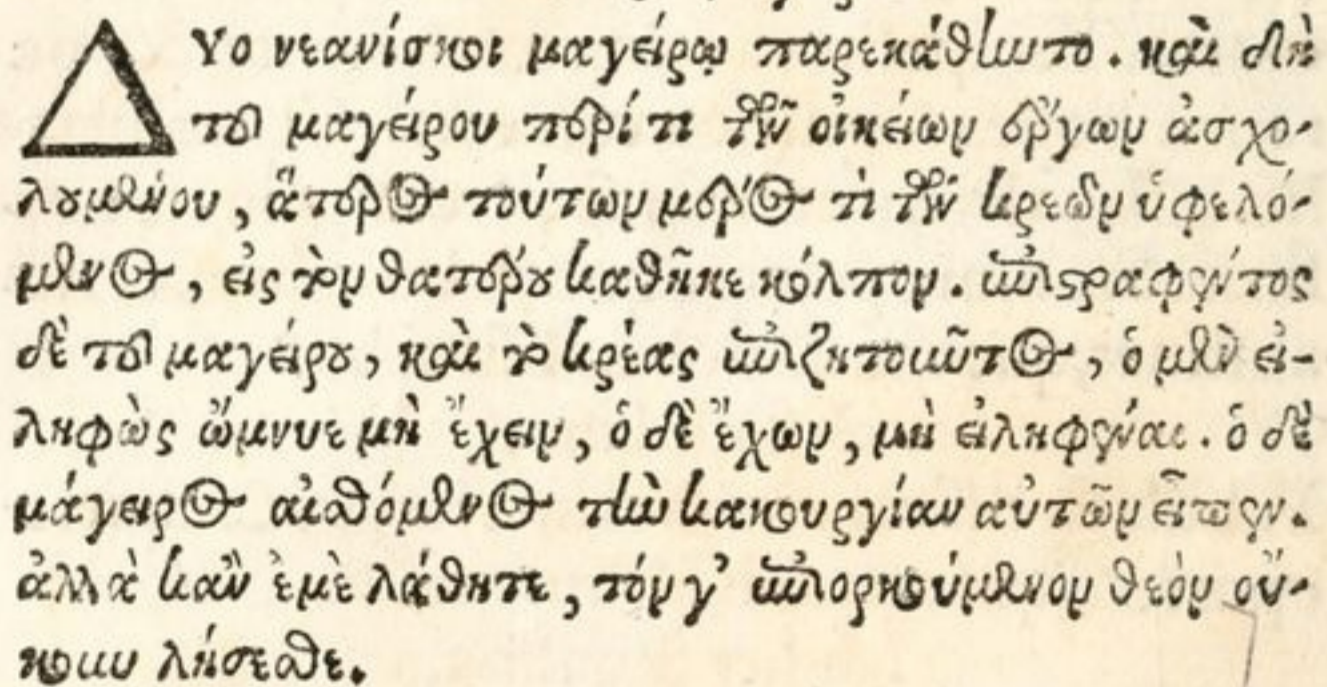 ΔΥΟ νεανίσκοι μαγείρῳ παρεκάθηντο. καὶ δὴ
τοῦ μαγείρου περί τι τῶν οἰκείων ἔργων ἀσχο-
λουμένου, ἅτερος τούτων μέρος τὶ τῶν κρεῶν ὑφελό-
μενος, εἰς τὸν θατέρου καθῆκε κόλπον. ἐπιστραφέντος
δὲ τοῦ μαγείρου, καὶ τὸ κρέας ἐπιζητοῦντος, ὁ μὲν εἰ-
ληφὼς ὤμνυε μὴ ἔχειν, ὁ δὲ ἔχων, μὴ εἰληφέναι. ὁ δὲ
μάγειρος αἰσθόμενος τὴν κακουργίαν αὐτῶν εἶπεν.
ἀλλὰ κἂν ἐμὲ λάθητε, τόν γ' ἐπιορκούμενον θεὸν οὔ-
κουν λήσεσθε.